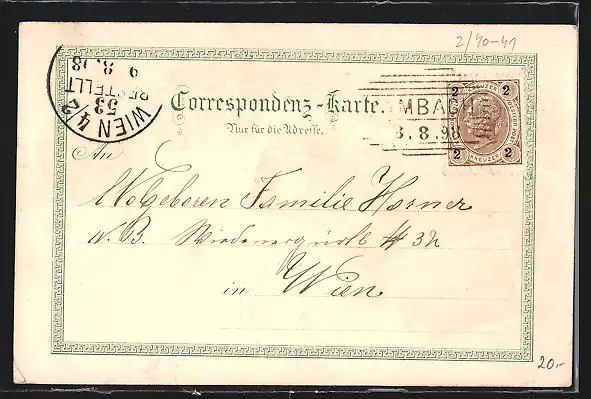 2/40-41
WIEN 4/2
53
BESTELLT
9 8.98
Correspondenz-Karte.
Nur für die Adresse.
MBACH
8.8.98
2 KREUZER 2
2 KREUZER 2
An
Wolgeboren Familie Horner
N. B. Wiedenergürtl # 32
in Wien
20.-